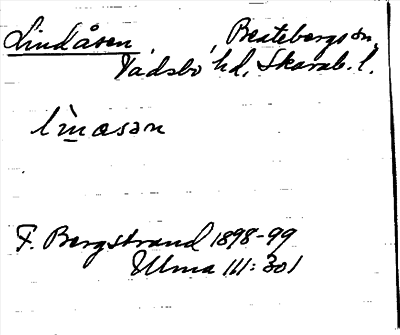 Lindåsen, Beatebergs sn,
Vadsbo hd, Skarab. l.
li̠̇næsən
F. Bergstrand 1898-99
Ulma 111:301